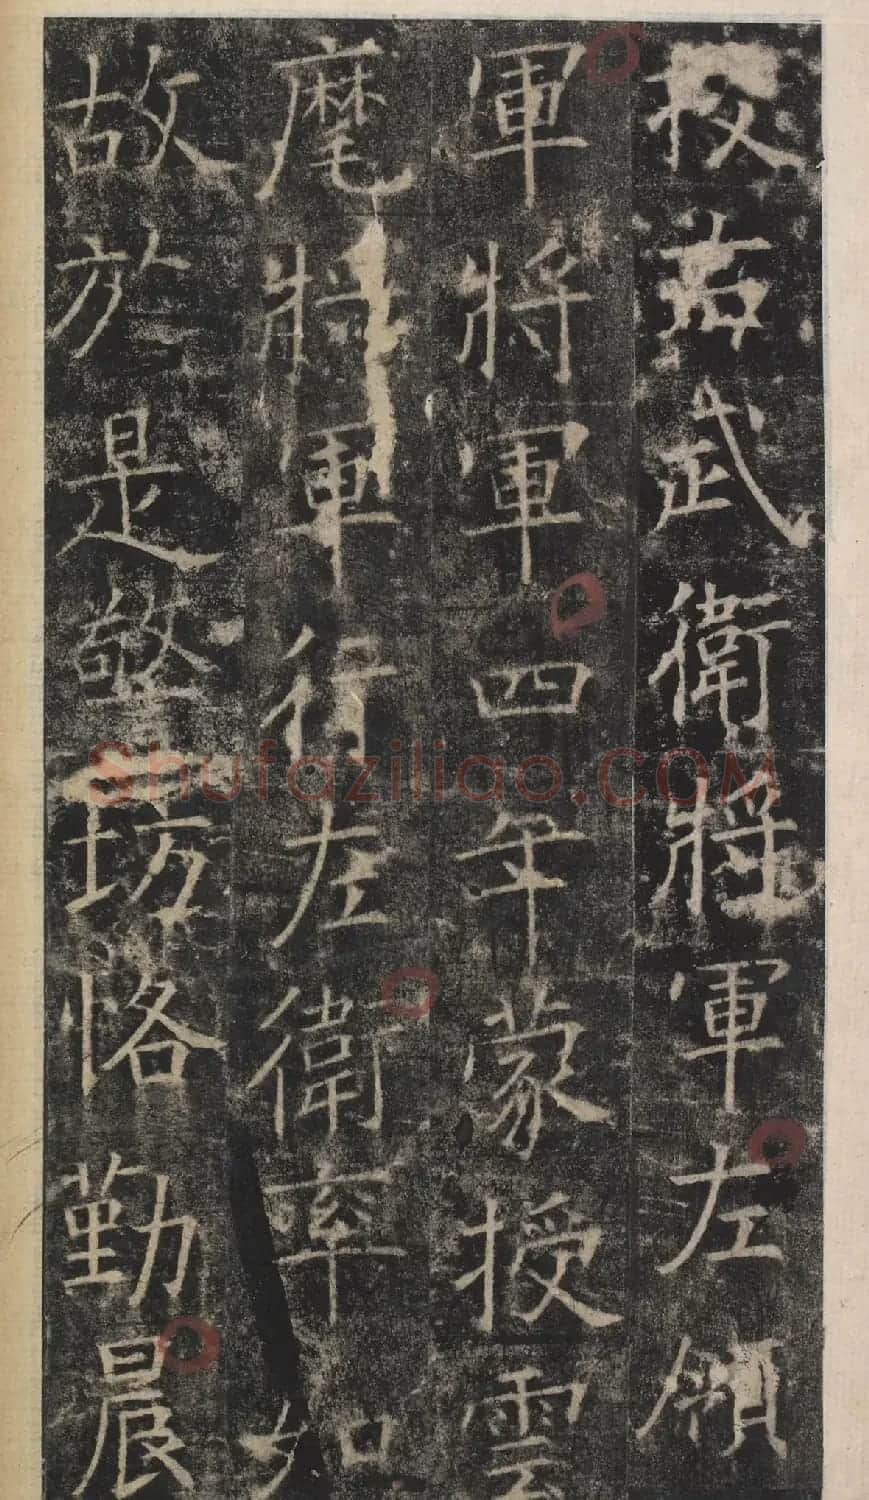 授右武衛將軍左領
軍將軍四年蒙授雲
麾將軍行左衛率如
故於是警坊恪勤晨
Shufaziliao.COM